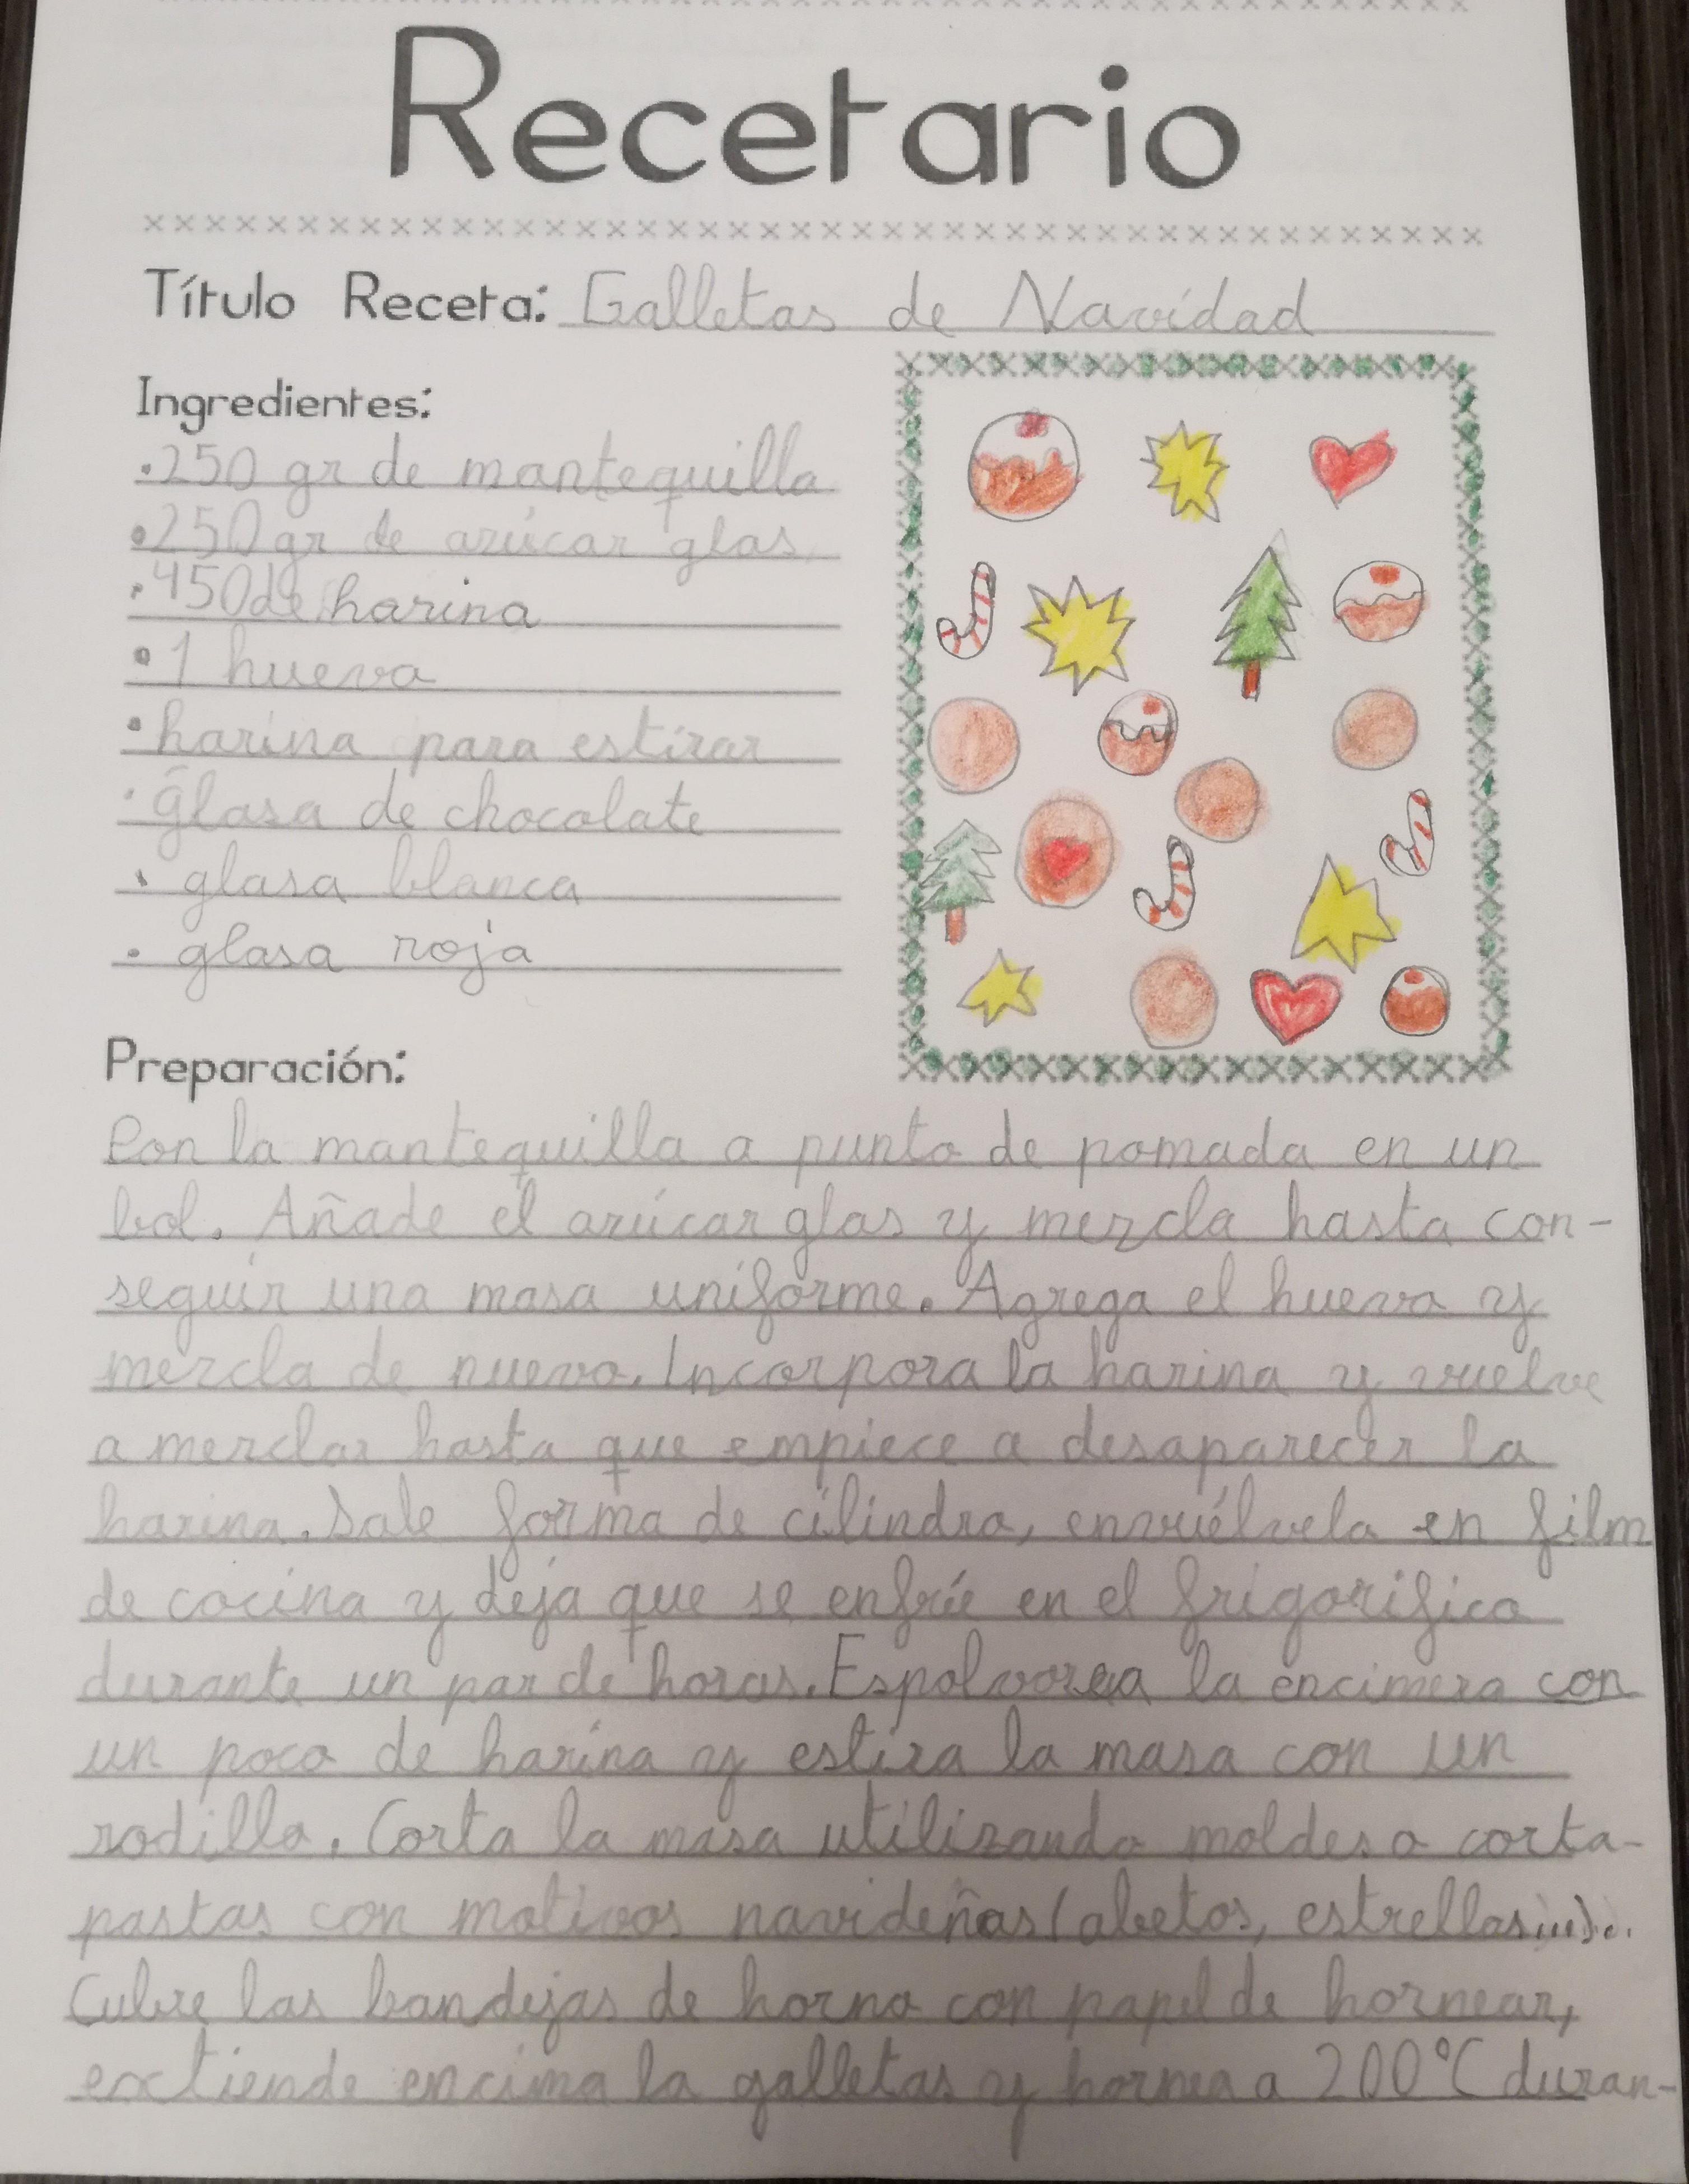 Recetario
Título Receta: Galletas de Navidad
Ingredientes:
•250 gr de mantequilla
•250 gr de azúcar glas
•450 de harina
•1 huevo
•harina para estirar
•glasa de chocolate
•glasa blanca
•glasa roja
Preparación:
Pon la mantequilla a punto de pomada en un
bol. Añade el azúcar glas y mezcla hasta con-
seguir una masa uniforme. Agrega el huevo y
mezcla de nuevo. Incorpora la harina y vuelve
a mezclar hasta que empiece a desaparecer la
harina. Dale forma de cilindro, envuélvela en film
de cocina y deja que se enfríe en el frigorífico
durante un par de horas. Espolvorea la encimera con
un poco de harina y estira la masa con un
rodillo. Corta la masa utilizando moldes o corta-
pastas con motivos navideños (abetos, estrellas...)..
Cubre las bandejas de horno con papel de hornear,
extiende encima la galletas y hornea a 200°C duran-